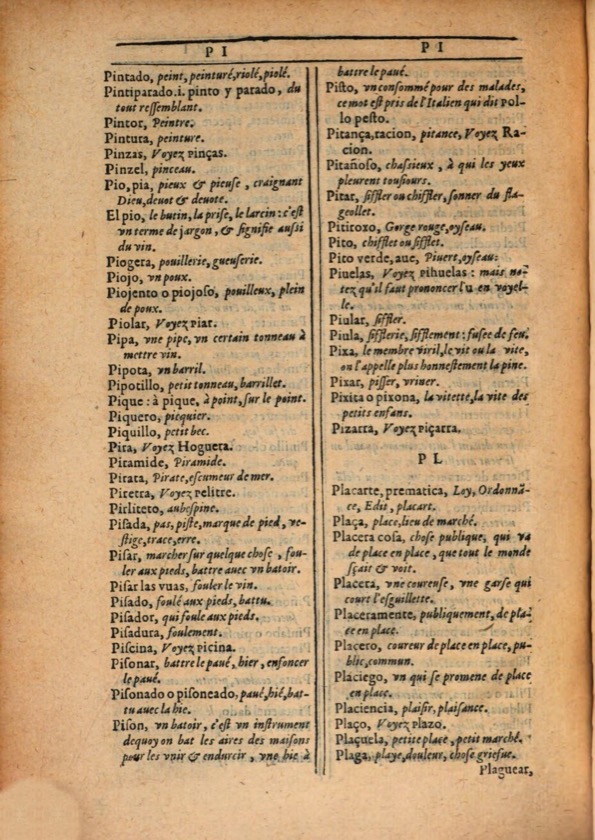 P I
Pintado, peint, peinturé, riolé, piolé.
Pintiparado.i. pinto y parado, du
tout ressemblant.
Pintor, Peintre.
Pintura, peinture.
Pinzas, Voyez Pinças.
Pinzel, pinceau.
Pio, pia, pieux & pieuse, craignant
Dieu, deuot & deuote.
El pio, le butin, la prise, le larcin: c'est
vn terme de jargon, & signifie aussi
du vin.
Piogera, pouillerie, gueuserie.
Piojo, vn poux.
Piojento o piojoso, pouilleux, plein
de poux.
Piolar, Voyez Piar.
Pipa, vne pipe, vn certain tonneau à
mettre vin.
Pipota, vn barril.
Pipotillo, petit tonneau, barrillet.
Pique: à pique, à point, sur le point.
Piquero, picquier.
Piquillo, petit bec.
Pira, Voyez Hoguera.
Piramide, Piramide.
Pirata, Pirate, escumeur de mer.
Piretra, Voyez Pelitre.
Pirliteto, aubespine.
Pisada, pas, piste, marque de pied, ve-
stige, trace, erre.
Pisar, marcher sur quelque chose, fou-
ler aux pieds, battre auec vn batoir.
Pisar las vuas, fouler le vin.
Pisado, foulé aux pieds, battu.
Pisador, qui foule aux pieds.
Pisadura, foulement.
Piscina, Voyez Picina.
Pisonar, battre le paué, hier, enfoncer
le paué.
Pisonado o pisoneado, paué, hié, bat-
tu auec la hie.
Pison, vn batoir, c'est vn instrument
dequoy on bat les aires des maisons
pour les vnir & endurcir, vne hie à
P I
battre le paué.
Pisto, vn consommé pour des malades,
ce mot est pris de l'Italien qui dit Pol-
lo pesto.
Pitança, racion, pitance, Voyez Ra-
cion.
Pitañoso, chassieux, à qui les yeux
pleurent tousiours.
Pitar, siffler ou chiffler, sonner du fla-
geollet.
Pitiroxo, Gorge rouge, oyseau.
Pito, chifflet ou sifflet.
Pito verde, aue, Piuert, oyseau:
Piuelas, Voyez Pihuelas: mais no-
tez qu'il faut prononcer l'u en voyel-
le.
Piular, siffler.
Piula, sifflerie, sifflement: fusee de feu.
Pixa, le membre viril, le vit ou la vite,
on l'appelle plus honnestement la pine.
Pixar, pisser, vriner.
Pixita o pixona, la vitette, la vite des
petits enfans.
Pizarra, Voyez Piçarra.
P L
Placarte, prematica, Loy, Ordonnā-
ce, Edit, placart.
Plaça, place, lieu de marché.
Placera cosa, chose publique, qui va
de place en place, que tout le monde
sçait & voit.
Placera, vne coureuse, vne garse qui
court l'esguillette.
Placeramente, publiquement, de pla-
ce en place.
Placero, coureur de place en place, pu-
blic, commun.
Placiego, vn qui se promene de place
en place.
Placiencia, plaisir, plaisance.
Plaço, Voyez Plazo.
Plaçuela, petite place, petit marché.
Plaga, playe, douleur, chose griefue.
Plaguear,